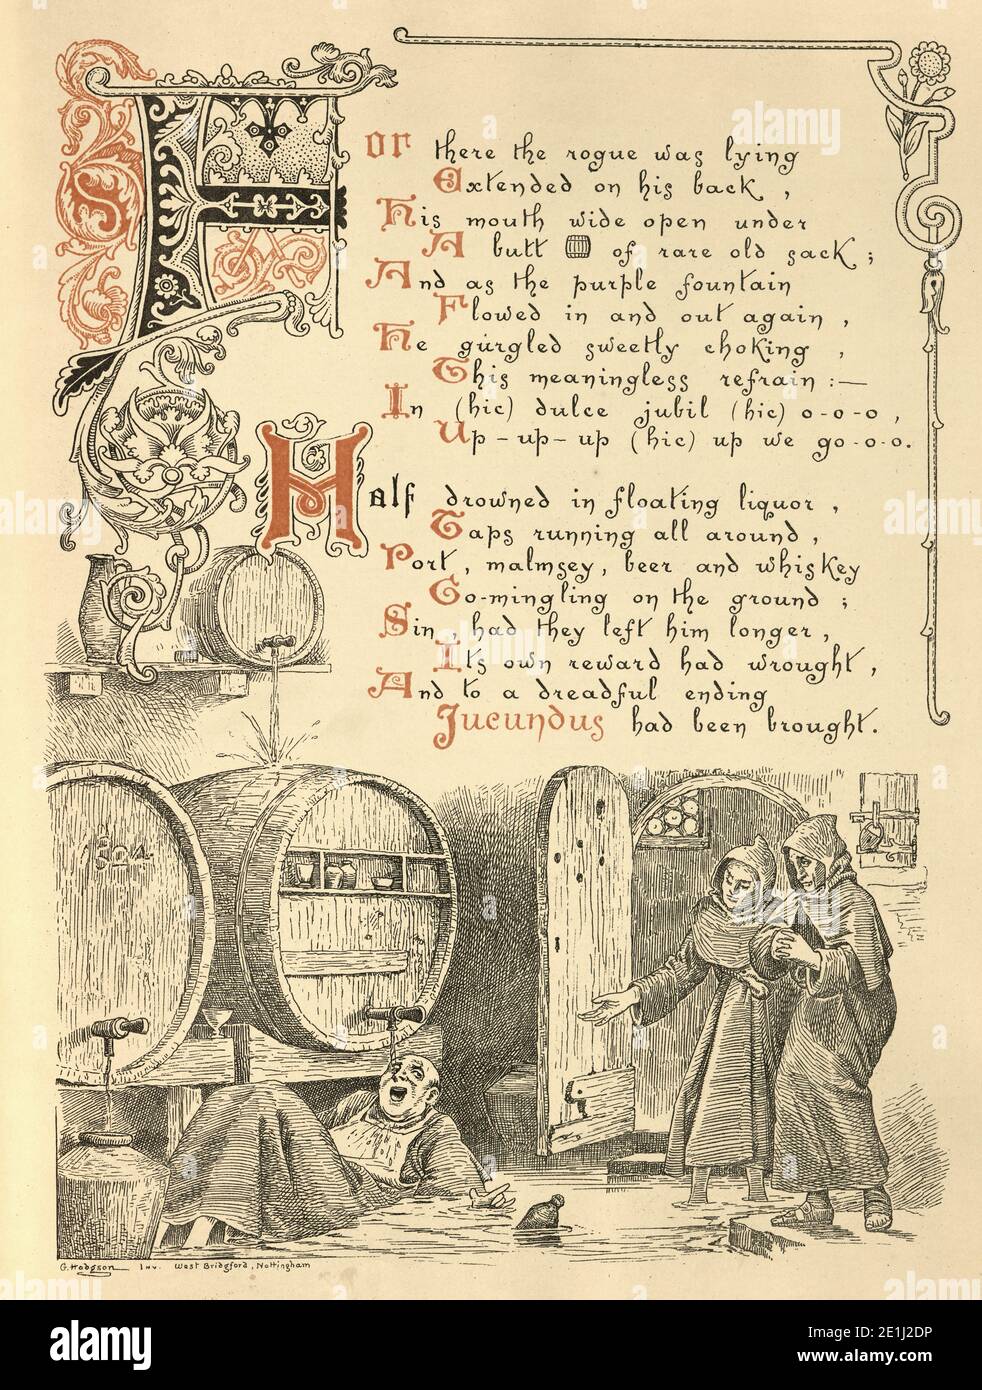 For there the rogue was lying
Extended on his back,
His mouth wide open under
A butt of rare old sack;
And as the purple fountain
Flowed in and out again,
He gurgled sweetly choking,
This meaningless refrain:—
In (hic) dulce jubil (hic) o-o-o,
Up-up-up (hic) up we go-o-o.
Half drowned in floating liquor,
Taps running all around,
Port, malmsey, beer and whiskey
Co-mingling on the ground;
Sin, had they left him longer,
Its own reward had wrought,
And to a dreadful ending
Jucundus had been brought.
G. Hodgson Inv. West Bridgford, Nottingham
alamy
Image ID: 2E1J2DP
www.alamy.com